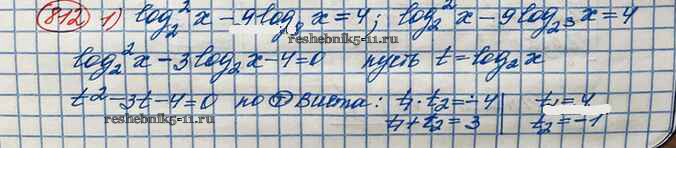 812 1) log₂²x - 9log₈x = 4; log₂²x - 9log₂³x = 4
reshebnik5-11.ru
log₂²x - 3log₂x - 4 = 0 пусть t = log₂x
t² - 3t - 4 = 0 по т Виета: t₁ · t₂ = -4 | t₁ = 4
reshebnik5-11.ru
t₁ + t₂ = 3 | t₂ = -1